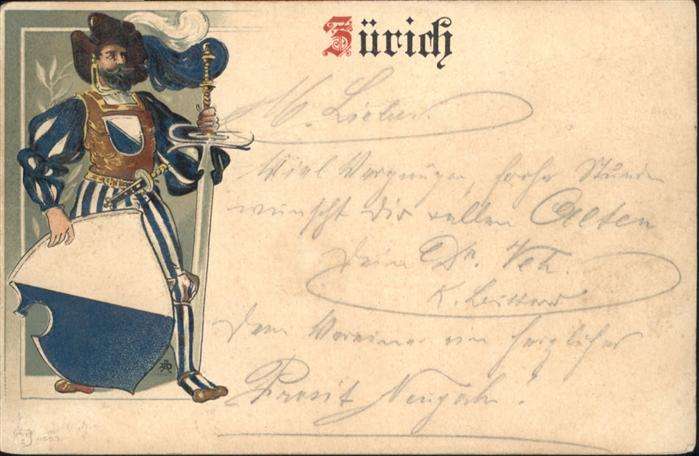 Zürich
M. Lieber
Viel Vergnügen, frohe Stunden
wünscht Dir vollen
Dein Dr. Veh.
K.
dem Vereine ein herzliches
Prosit Neujahr!